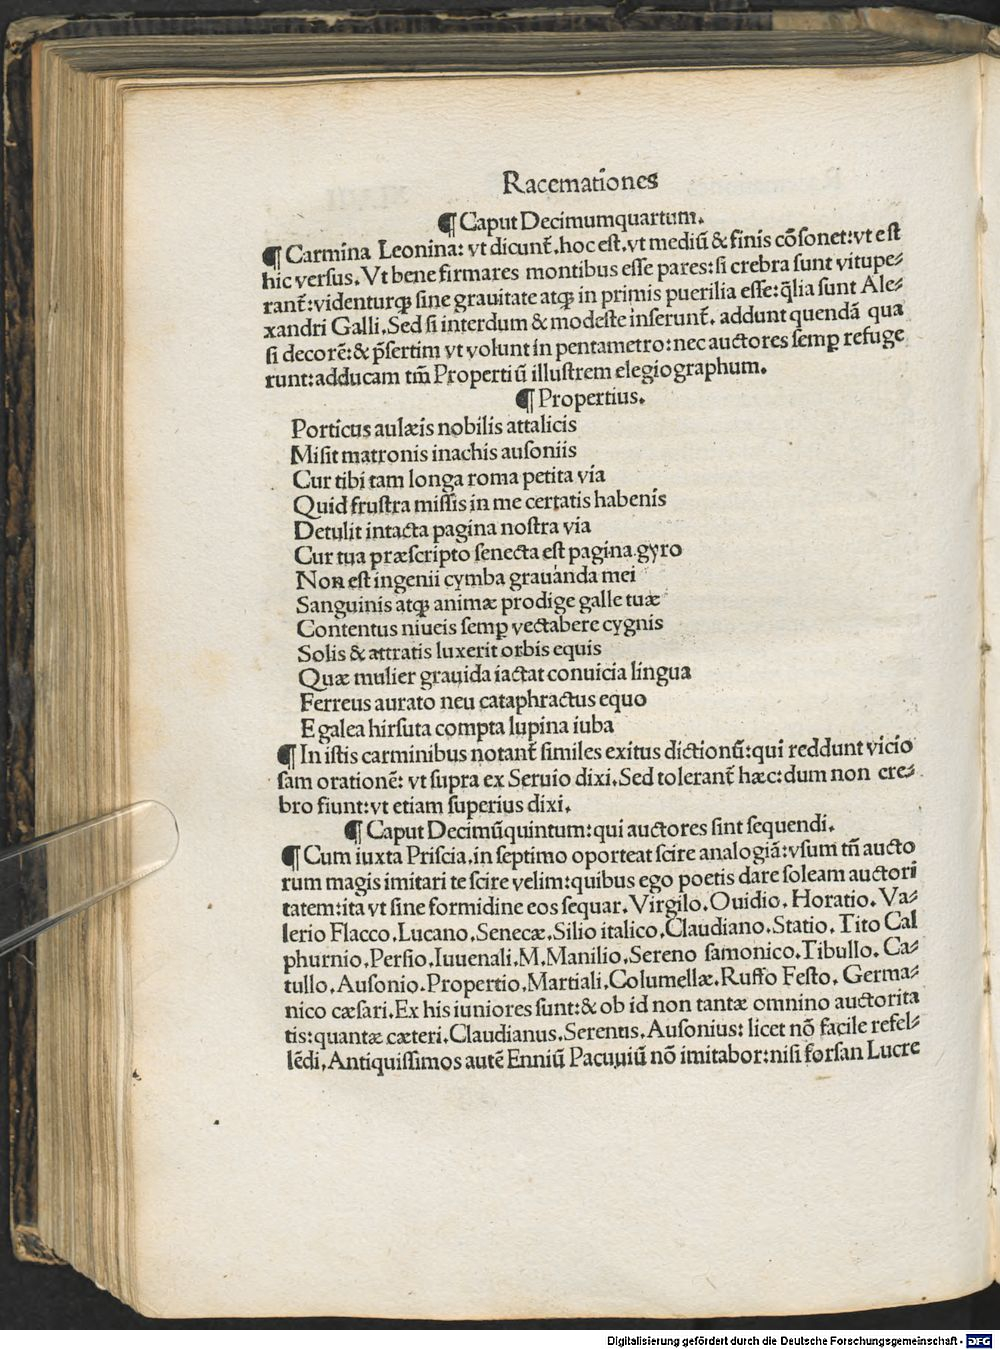 Racemationes
¶ Caput Decimumquartum.
¶ Carmina Leonina: vt dicunt᷑. hoc est. vt mediū & finis cōsonet: vt est
hic versus. Vt bene firmares montibus esse pares: si crebra sunt vitupe-
rant᷑: videnturq̨ sine grauitate atq̨ in primis puerilia esse: q̄lia sunt Ale-
xandri Galli. Sed si interdum & modeste inserunt᷑. addunt quendā qua
si decorē: & p̄sertim vt volunt in pentametro: nec auctores semꝑ refuge
runt: adducam tm̄ Propertiū illustrem elegiographum.
¶ Propertius.
Porticus aulæis nobilis attalicis
Misit matronis inachis ausoniis
Cur tibi tam longa roma petita via
Quid frustra missis in me certatis habenis
Detulit intacta pagina nostra via
Cur tua præscripto senecta est pagina gyro
Non est ingenii cymba grauanda mei
Sanguinis atq̨ animæ prodige galle tuæ
Contentus niueis semꝑ vectabere cygnis
Solis & attratis luxerit orbis equis
Quæ mulier grauida iactat conuicia lingua
Ferreus aurato neu cataphractus equo
E galea hirsuta compta lupina iuba
¶ In istis carminibus notant᷑ similes exitus dictionū: qui reddunt vicio
sam orationē: vt supra ex Seruio dixi. Sed tolerant᷑ hæc: dum non cre-
bro fiunt: vt etiam superius dixi.
¶ Caput Decimūquintum: qui auctores sint sequendi.
¶ Cum iuxta Priscia. in septimo oporteat scire analogiā: vsum tn̄ aucto
rum magis imitari te scire velim: quibus ego poetis dare soleam auctori
tatem: ita vt sine formidine eos sequar. Virgilo. Ouidio. Horatio. Va-
lerio Flacco. Lucano. Senecæ. Silio italico. Claudiano. Statio. Tito Cal
phurnio. Persio. Iuuenali. M. Manilio. Sereno samonico. Tibullo. Ca-
tullo. Ausonio. Propertio. Martiali. Columellæ. Ruffo Festo. Germa-
nico cæsari. Ex his iuniores sunt: & ob id non tantæ omnino auctorita
tis: quantæ cæteri. Claudianus. Serenus. Ausonius: licet nō facile refel-
lēdi. Antiquissimos autē Enniū Pacuuiū nō imitabor: nisi forsan Lucre
Digitalisierung gefördert durch die Deutsche Forschungsgemeinschaft - DFG